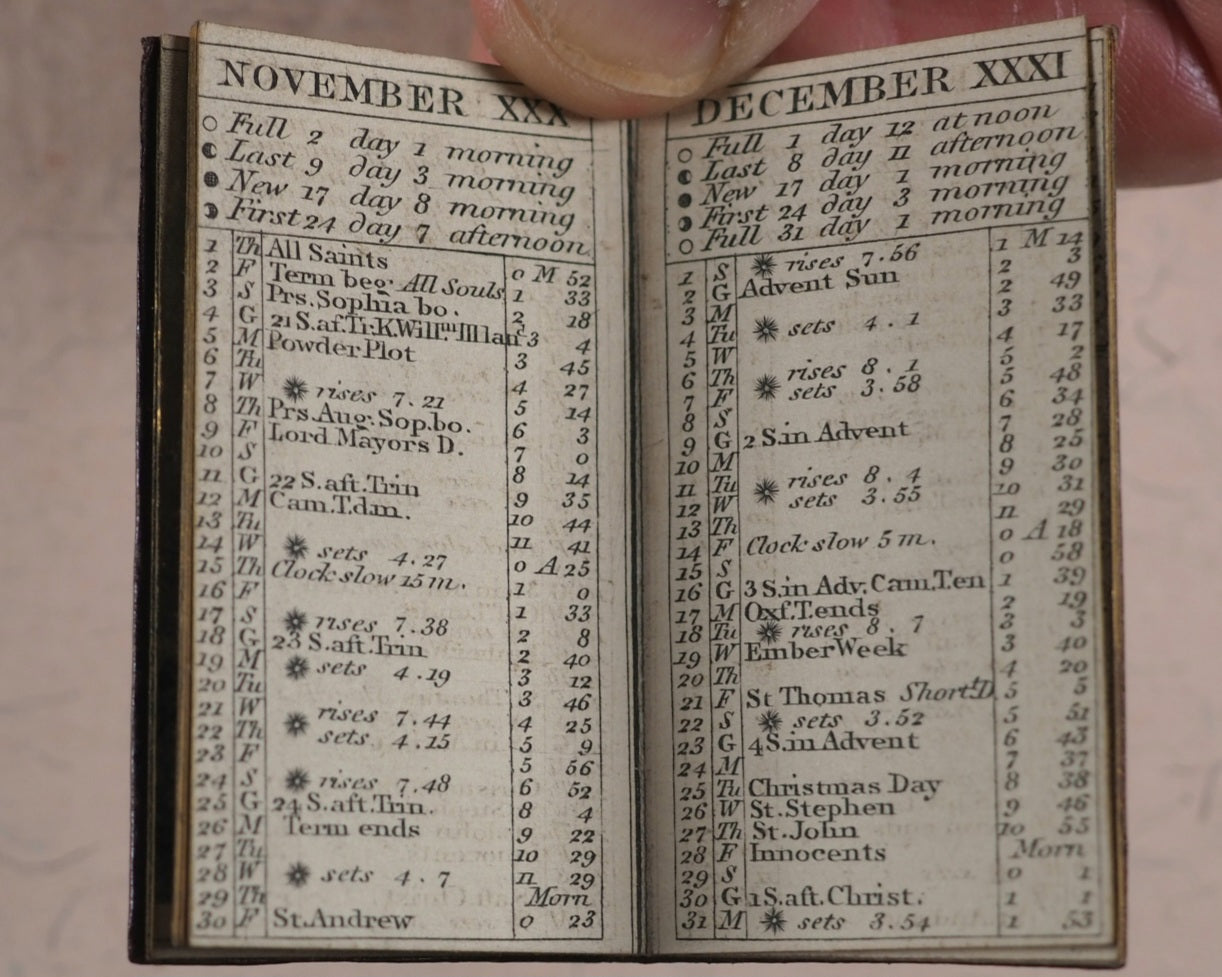 NOVEMBER XXX
Full 2 day 1 morning
Last 9 day 3 morning
New 17 day 8 morning
First 24 day 7 afternoon
1 Th All Saints 0 M 52
2 F Term beg: All Souls 1 33
3 S Prs.Sophia bo. 2 18
4 G 21 S.af.Tr:K.Willm III land 3 4
5 M Powder Plot 3 45
6 Tu 4 27
7 W rises 7.21 5 14
8 Th Prs.Aug:Sop.bo. 6 3
9 F Lord Mayors D. 7 0
10 S 8 14
11 G 22 S.aft.Trin 9 35
12 M Cam.T.d.m. 10 44
13 Tu 11 41
14 W sets 4.27 0 A 25
15 Th Clock slow 15 m. 1 0
16 F 1 33
17 S rises 7.38 2 8
18 G 23 S.aft.Trin 2 40
19 M sets 4.19 3 12
20 Tu 3 46
21 W rises 7.44 4 25
22 Th sets 4.15 5 9
23 F 5 56
24 S rises 7.48 6 52
25 G 24 S.aft.Trin. 8 4
26 M Term ends 9 22
27 Tu 10 29
28 W sets 4.7 11 29
29 Th Morn
30 F St.Andrew 0 23
DECEMBER XXXI
Full 1 day 12 at noon
Last 8 day 11 afternoon
New 17 day 1 morning
First 24 day 3 morning
Full 31 day 1 morning
1 S rises 7.56 1 M 14
2 G Advent Sun 2 3
3 M 2 49
4 Tu sets 4.1 3 33
5 W 4 17
6 Th rises 8.1 5 2
7 F sets 3.58 5 48
8 S 6 34
9 G 2 S.in Advent 7 28
10 M 8 25
11 Tu rises 8.4 9 30
12 W sets 3.55 10 31
13 Th 11 29
14 F Clock slow 5 m. 0 A 18
15 S 0 58
16 G 3 S.in Adv.Cam.T.en 1 39
17 M Oxf.T.ends 2 19
18 Tu rises 8.7 3 3
19 W Ember Week 3 40
20 Th 4 20
21 F St Thomas Short.D. 5 5
22 S sets 3.52 5 51
23 G 4 S.in Advent 6 43
24 M 7 37
25 Tu Christmas Day 8 38
26 W St.Stephen 9 46
27 Th St.John 10 55
28 F Innocents Morn
29 S 0 1
30 G 1 S.aft.Christ. 1 1
31 M sets 3.54 1 53